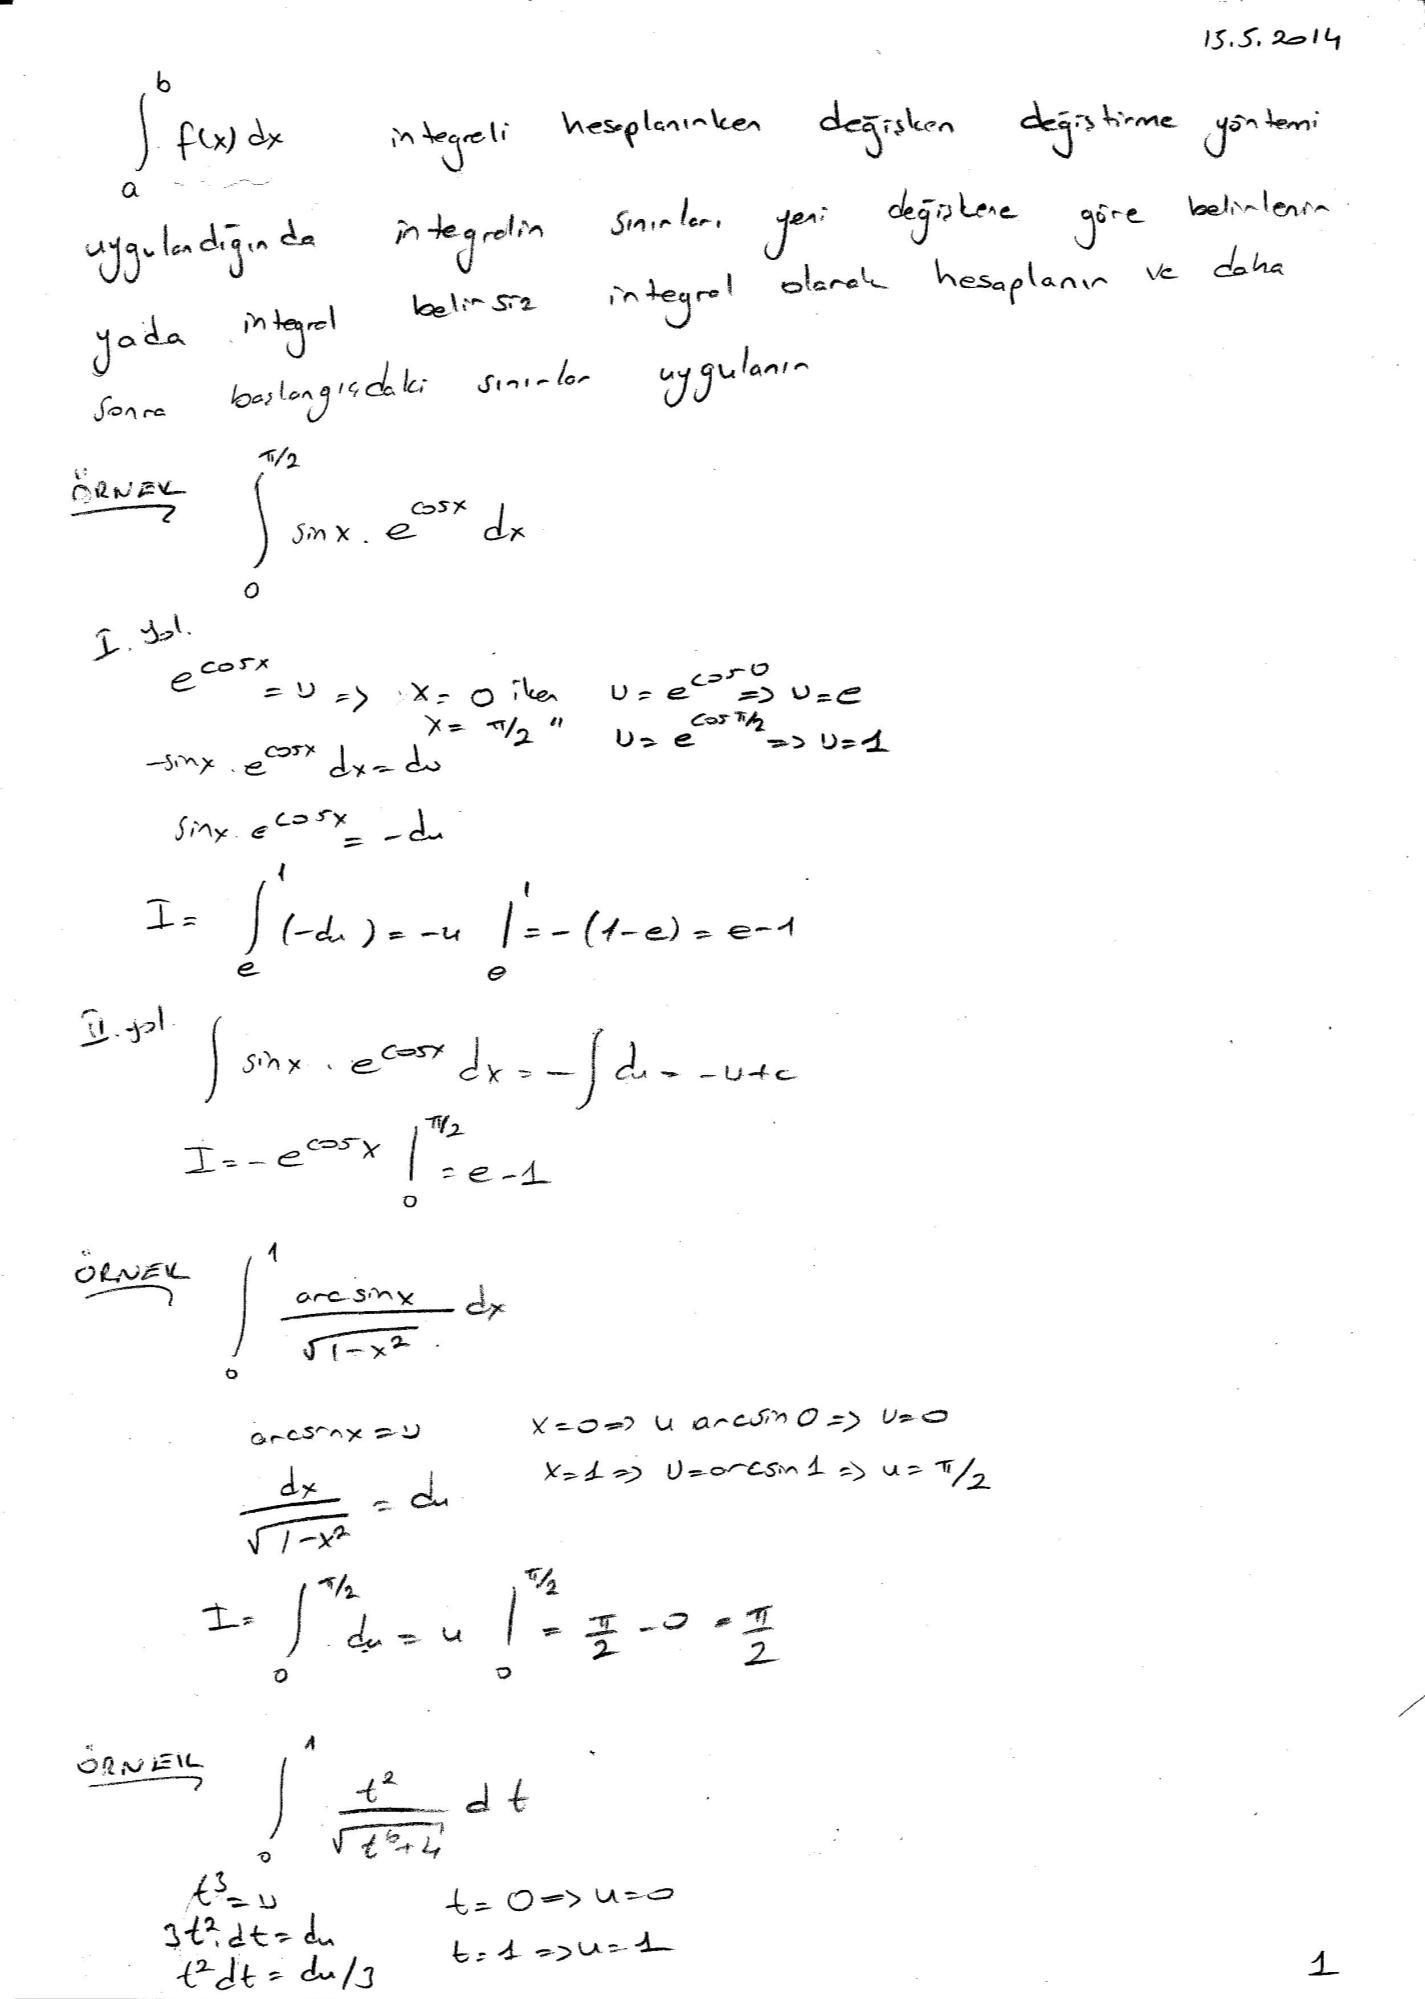 15.5.2014
∫_a^b f(x) dx integreli hesaplanırken değişken değiştirme yöntemi
uygulandığında integralin sınırları yeni değişkene göre belirlenir
yada integral belirsiz integral olarak hesaplanır ve daha
sonra başlangıçdaki sınırlar uygulanır
ÖRNEK ∫_0^{π/2} sinx . e^{cosx} dx
I. yol.
e^{cosx} = u => x = 0 iken u = e^{cos0} => u = e
x = π/2 " u = e^{cosπ/2} => u = 1
-sinx . e^{cosx} dx = du
sinx . e^{cosx} = -du
I = ∫_e^1 (-du) = -u |_e^1 = -(1-e) = e-1
II. yol. ∫ sinx . e^{cosx} dx = - ∫ du = -u+c
I = -e^{cosx} |_0^{π/2} = e-1
ÖRNEK ∫_0^1 arcsinx / √(1-x²) dx
arcsınx = u x=0 => u arcsin0 => u=0
dx / √(1-x²) = du x=1 => u=arcsin1 => u = π/2
I = ∫_0^{π/2} du = u |_0^{π/2} = π/2 - 0 = π/2
ÖRNEK ∫_0^1 t² / √(t⁶+4) dt
t³ = u t = 0 => u=0
3t².dt = du t=1 => u=1
t² dt = du/3
1